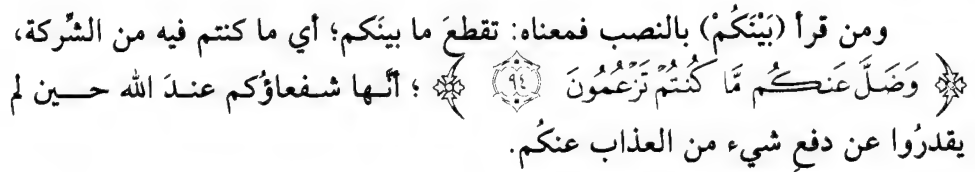 ومن قرأ (بَيْنَكُمْ) بالنصب فمعناه: تقطعَ ما بينَكم؛ أي ما كنتم فيه من الشَّركة،
﴿ وَضَلَّ عَنكُم مَّا كُنتُمْ تَزْعُمُونَ ٩٤ ﴾ ؛ أنَّـها شـفعاؤُكم عنـدَ الله حـــين لم
يقدرُوا عن دفعِ شيء من العذاب عنكُم.